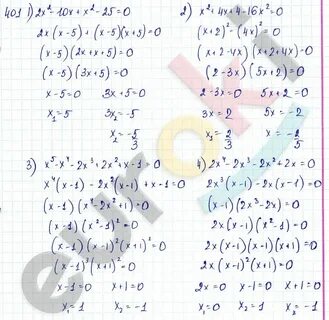 401 1) 2x² - 10x + x² - 25 = 0
2x(x-5) + (x-5)(x+5) = 0
(x-5)(2x+x+5) = 0
(x-5)(3x+5) = 0
x-5=0 3x+5=0
x₁=5 3x₂=-5
x₂=-5/3
2) x²+4x+4-16x²=0
(x+2)²-(4x)²=0
(x+2-4x)(x+2+4x)=0
(2-3x)(5x+2)=0
2-3x=0 5x+2=0
3x=2 5x=-2
x₁=2/3 x=-2/5
3) x⁵-x⁴-2x³+2x²+x-1=0
x⁴(x-1)-2x²(x-1)+x-1=0
(x-1)(x⁴-2x²+1)=0
(x-1)(x²-1)²=0
(x-1)(x-1)²(x+1)²=0
(x-1)³(x+1)²=0
x-1=0 x+1=0
x₁=1 x₂=-1
4) 2x⁴-2x³-2x²+2x=0
2x³(x-1)-2x(x-1)=0
(x-1)(2x³-2x)=0
2x(x-1)(x²-1)=0
2x(x-1)(x-1)(x+1)=0
2x(x-1)²(x+1)=0
2x=0 x-1=0 x+1=0
x₁=0 x₂=1 x₃=-1
euroki